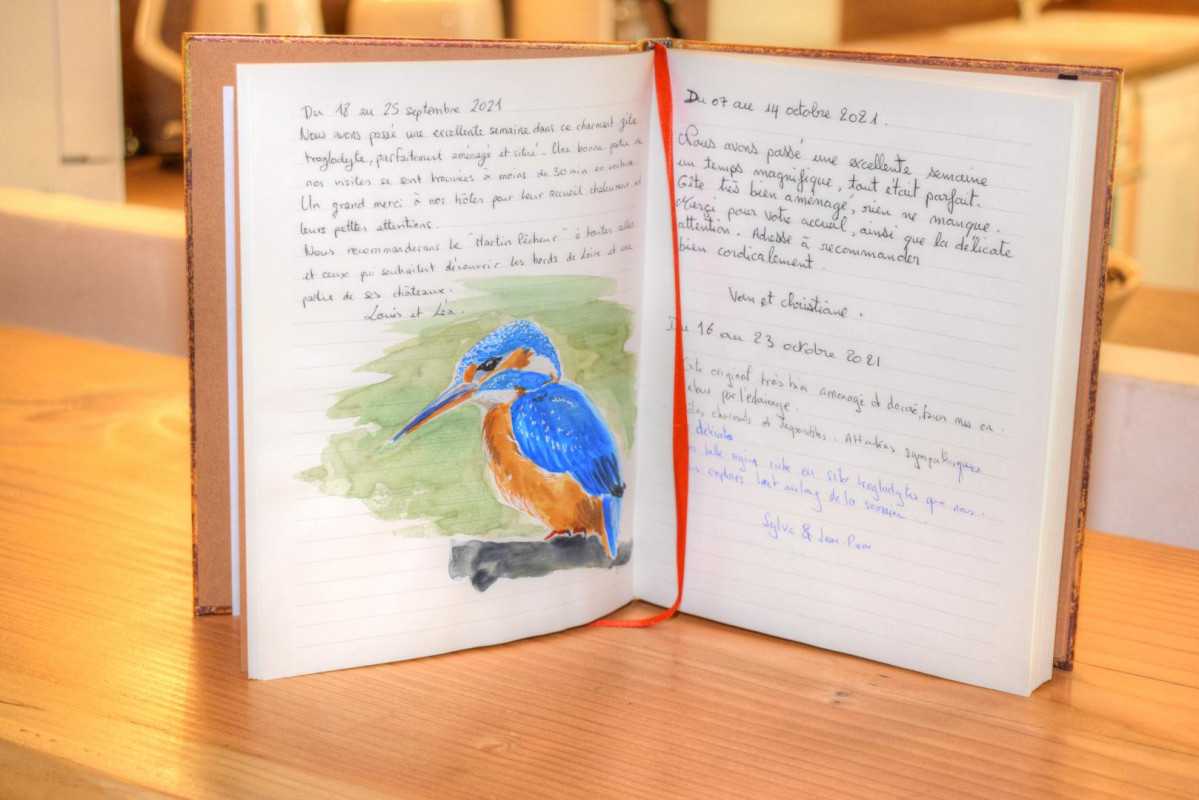 Du 18 au 25 septembre 2021
Nous avons passé une excellente semaine dans ce charmant gîte
troglodyte, parfaitement aménagé et situé. Une bonne partie de
nos visites se sont trouvées à moins de 30 min en voiture.
Un grand merci à nos hôtes pour leur accueil chaleureux et
leurs petites attentions.
Nous recommanderons le "Martin Pêcheur" à toutes celles
et ceux qui souhaitent découvrir les bords de Loire et une
partie de ses châteaux.
Louis et Léa.
Du 07 au 14 octobre 2021.
Nous avons passé une excellente semaine
un temps magnifique, tout était parfait.
Gîte très bien aménagé, rien ne manque.
Merci pour votre accueil, ainsi que la délicate
attention. Adresse à recommander
bien cordicalement.
Van et christiane.
Du 16 au 23 octobre 2021
original très bien aménagé et décoré, bien mis en
par l'éclairage.
charmants et disponibles. Attentions sympathiques
délicates
belle région riche en sites troglodytes que nous
tout au long de la semaine...
Sylvie & Jean-Pierre